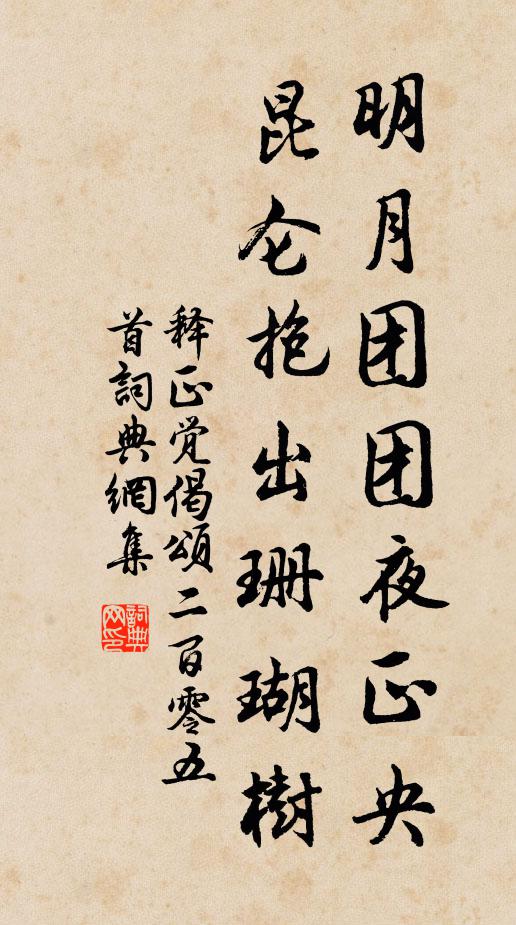 明月团团夜正央
昆仑抱出珊瑚树
释正觉偈颂二百零五
首詞典網集
詞典
网印